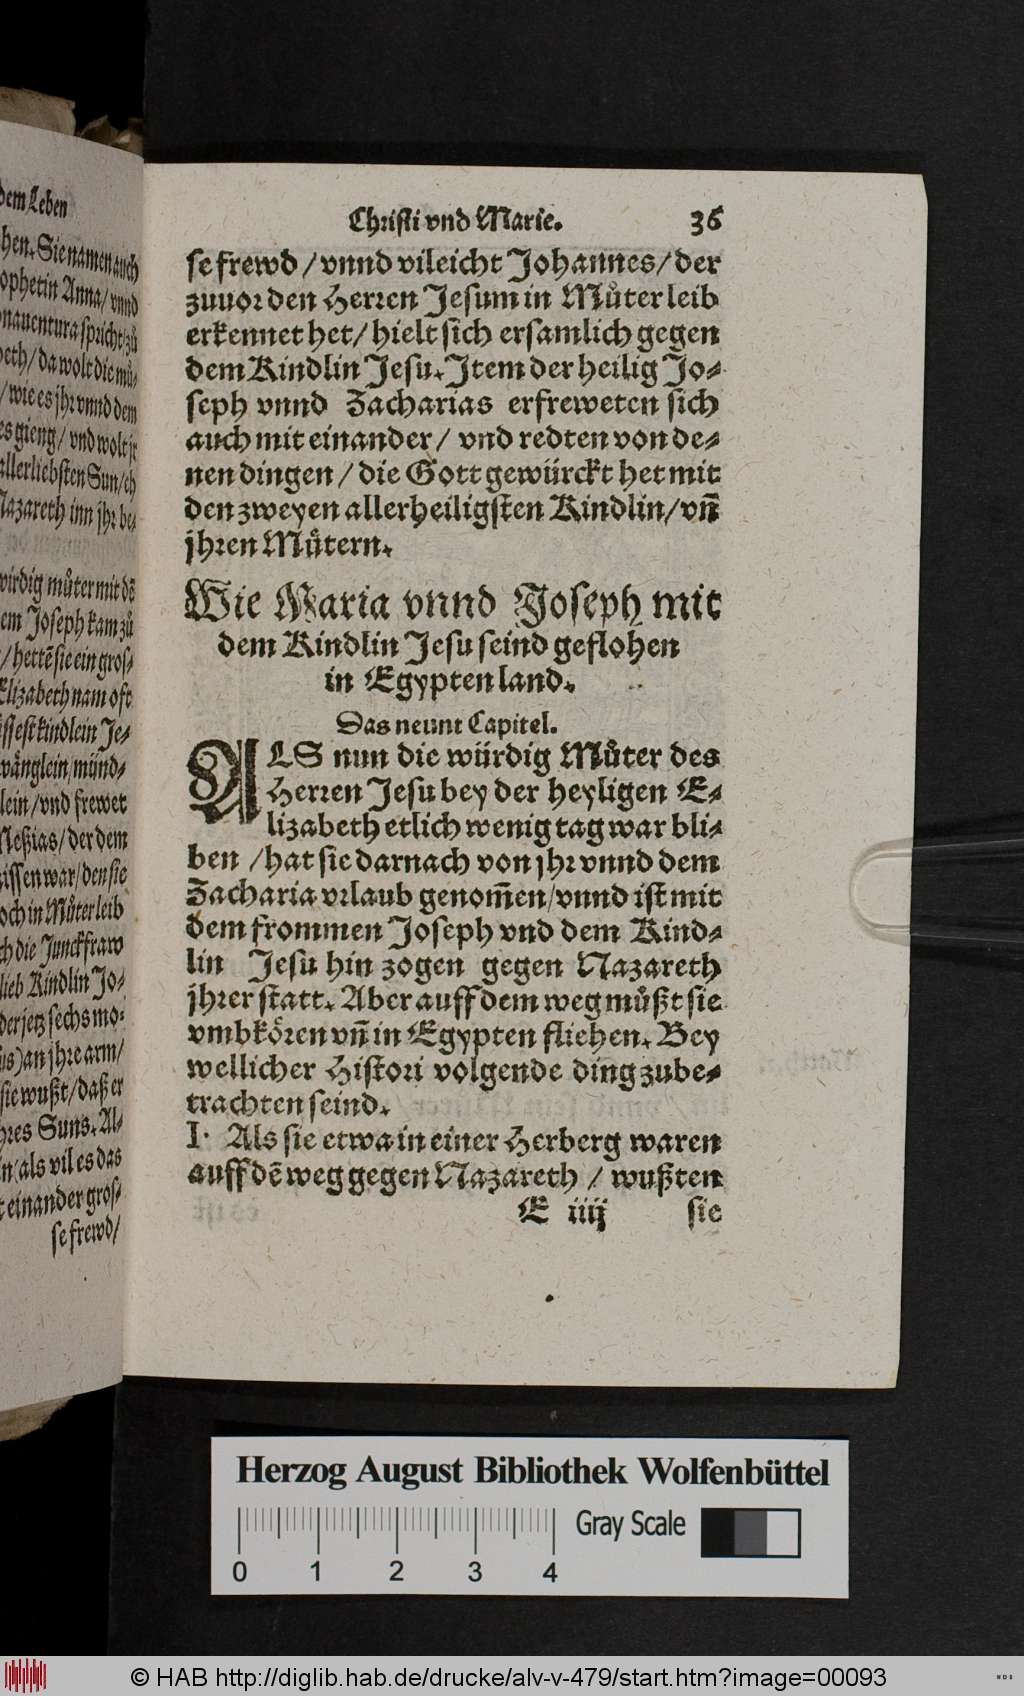 dem Leben
hen. Sie namen auch
ophetin Anna/ vnnd
nauentura spricht/ zů
beth/ da wolt die můͤ-
/ wie es jhr vnnd dem
es gieng/ vnd wolt jr
allerliebsten Sun/ eh
Nazareth inn jhr be-
wirdig můter mit dē
em Joseph kam zů
/ hettē sie ein gros-
Elizabeth nam oft
süssest kindlein Je-
wänglein/ münd-
lein/ vnd frewet
Meßias/ der dem
rissen war/ den sie
och in Můter leib
ch die Junckfraw
lieb Kindlin Jo-
der jetz sechs mo-
) an jhre arm/
sie wußt/ daß er
jhres Suns. Al-
n/ als vil es das
t einander gros-
se frewd/
Christi vnd Marie. 36
se frewd / vnnd vileicht Johannes/ der
zuuor den Herren Jesum in Můter leib
erkennet het/ hielt sich ersamlich gegen
dem Kindlin Jesu. Item der heilig Jo-
seph vnnd Zacharias erfreweten sich
auch mit einander/ vnd redten von de-
nen dingen / die Gott gewürckt het mit
den zweyen allerheiligsten Kindlin/ vn̄
jhren Můtern.
Wie Maria vnnd Joseph mit
dem Kindlin Jesu seind geflohen
in Egypten land.
Das neunt Capitel.
ALS nun die würdig Můter des
Herren Jesu bey der heyligen E-
lizabeth etlich wenig tag war bli-
ben / hat sie darnach von jhr vnnd dem
Zacharia vrlaub genom̄en/ vnnd ist mit
dem frommen Joseph vnd dem Kind-
lin Jesu hin zogen gegen Nazareth
jhrer statt. Aber auff dem weg můßt sie
vmbkören vn̄ in Egypten fliehen. Bey
wellicher Histori volgende ding zube-
trachten seind.
I. Als sie etwa in einer Herberg waren
auff dē weg gegen Nazareth / wußten
E iiij sie
Herzog August Bibliothek Wolfenbüttel
0 1 2 3 4
Gray Scale
© HAB http://diglib.hab.de/drucke/alv-v-479/start.htm?image=00093